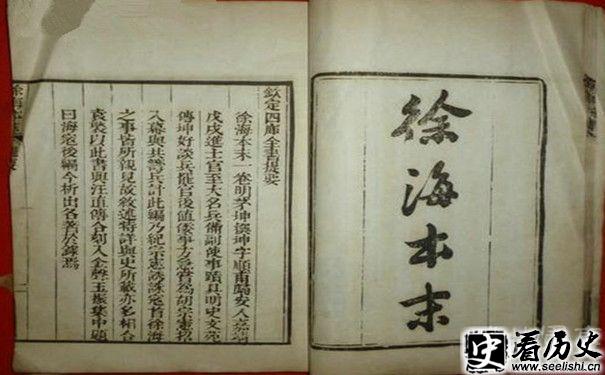 徐海本末
欽定四庫全書提要
徐海本末一卷明茅坤撰坤字順甫歸安人嘉靖
戊戌進士官至大名兵備副使事蹟具明史文苑
傳坤好談兵罷官後值倭事方急嘗爲胡宗憲招
入幕與共籌兵計此編乃紀宗憲誘誅寇首徐海
之事皆所親見故敘述特詳與史所載亦多相合
袁褧以此書與汪直傳合刻入金聲玉振集中題
曰海寇後編今析出各著於錄焉
史
看历史
www.seelishi.cn